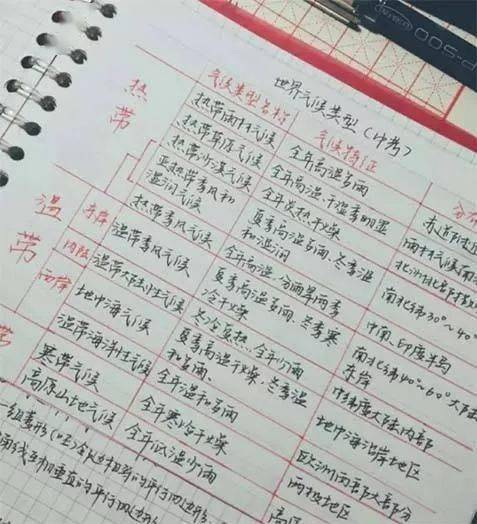 世界气候类型(中考)
热带
气候类型名称 气候特征 分布
热带雨林气候 全年高温多雨
热带草原气候 全年高温,干湿季明显
热带沙漠气候 全年炎热干燥
亚热带季风和湿润气候 夏季高温多雨、冬季温和湿润 南北纬30°~40°
热带季风气候 全年高温,分雨旱两季 中南、印度半岛
温带
东岸
温带季风气候 夏季高温多雨、冬季寒冷干燥 南北纬40°~60°大陆东岸
内陆
温带大陆性气候 冬冷夏热,全年少雨 中纬度大陆内部
西岸
地中海气候 夏季高温干燥,冬季温和多雨、 地中海沿岸地区
温带海洋性气候 全年温和多雨 欧洲西部大部分
寒带气候 全年寒冷干燥 两极地区
高原山地气候 全年低温少雨
带
P-500